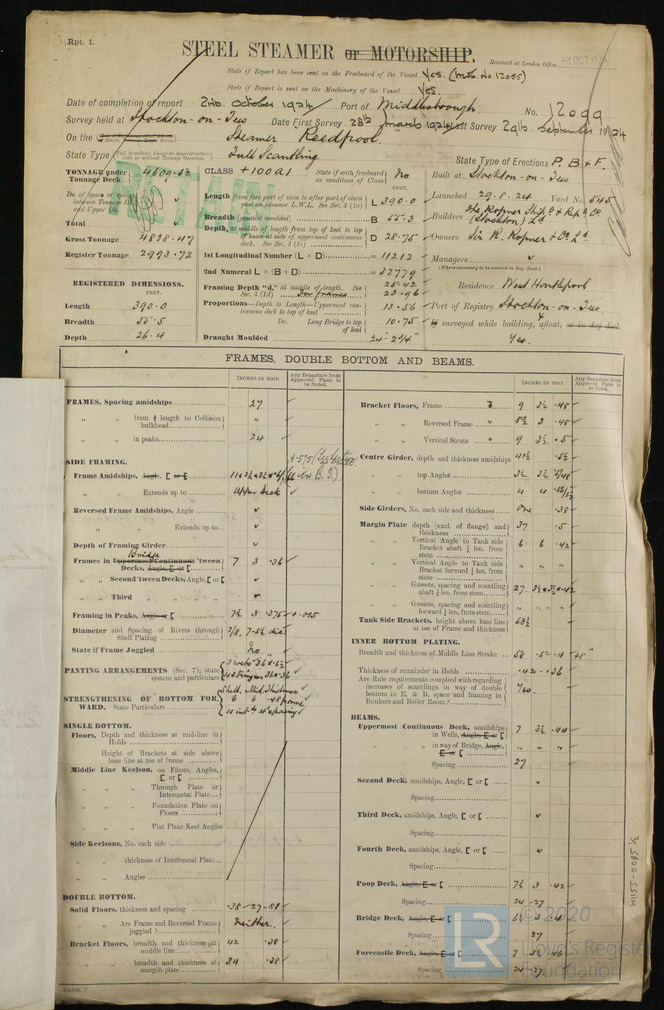 Rpt. 1.
STEEL STEAMER or MOTORSHIP.
Received at London Office
State if Report has been sent on the Freeboard of the Vessel Yes. (Mbo. No. 12035)
State if Report is sent on the Machinery of the Vessel Yes.
Date of completion of report 2nd. October 1924 Port of Middlesbrough No. 12099
Survey held at Stockton-on-Tees Date First Survey 28th March 1924 Last Survey 29th September 1924
On the Steamer "Reedpool"
State Type Full Scantling
State Type of Erections P, B & F.
TONNAGE under Tonnage Deck 4609.63
CLASS +100A1 State if with freeboard as condition of Class No
Built at Stockton-on-Tees
Launched 29.8.24 Yard No. 545
Total
Length from fore part of stem to after part of stern post on summer L.W.L. See Sec. 3 (1a) L 390.0
Breadth (greatest moulded) B 55.3
Depth, at middle of length from top of keel to top of beam at side of uppermost continuous deck. See Sec. 3 (1c) D 28.75
Builders The Ropner Ship B & Rep. Co (Stockton) Ld
Gross Tonnage 4838.47
Register Tonnage 2993.72
1st Longitudinal Number (L × D) = 11212
2nd Numeral L × (B + D) = 32779
Owners Sir R. Ropner & Co Ld
Managers
(Where necessary to be entered in Reg. Book.)
REGISTERED DIMENSIONS.
FEET.
Framing Depth "d," at middle of length. See Sec. 3 (1d) 25.42
23.96
Residence West Hartlepool
Length 390.0
Proportions—Depth to Length—Uppermost continuous deck to top of keel 13.56
Port of Registry Stockton-on-Tees
Breadth 55.5
Do. Long Bridge to top of keel 10.75
If surveyed while building, afloat, or in dry dock Yes.
Depth 26.4
Draught Moulded 24'-2¾"
FRAMES, DOUBLE BOTTOM AND BEAMS.
INCHES IN SHIP.
Any Departure from Approved Plans to be Noted.
INCHES IN SHIP.
Any Departure from Approved Plans to be Noted.
FRAMES, Spacing amidships 27
" " from ⅗ length to Collision bulkhead "
" " in peaks 24
SIDE FRAMING.
Frame Amidships, Angle, [ or [
" " Extends up to Upper Deck
Reversed Frame Amidships, Angle
" " Extends up to
Depth of Framing Girder
Frames in Uppermost Continuous 'tween Decks, Angle, [ or [ Bridge 7 3 .36
" Second 'tween Decks, Angle, [ or [
" Third " " "
Framing in Peaks, Angle or [ 7½ 3 .375 +.015
Diameter and Spacing of Rivets through Shell Plating 7/8. 7-5½ dia
State if Frame Joggled No
PANTING ARRANGEMENTS (Sec. 7), state system and particulars
STRENGTHENING OF BOTTOM FORWARD. State Particulars
SINGLE BOTTOM.
Floors, Depth and thickness at mid-line in Holds
Height of Brackets at side above base line at toe of frame
Middle Line Keelson, on Floors, Angles, [ or [
" " Through Plate or Intercostal Plate
" " Foundation Plate on Floors
" " Flat Plate Keel Angles
Side Keelsons, No. each side
" " thickness of Intercostal Plate
" " Angles
DOUBLE BOTTOM.
Solid Floors, thickness and spacing .38 - 27-81
" " Are Frame and Reversed Frame joggled? Neither.
Bracket Floors, breadth and thickness at middle line 42 .38
" " breadth and thickness at margin plate 34 .38
Bracket Floors, Frame 9 3½ .48
" " Reversed Frame 5½ 3 .48
" " Vertical Struts 9 3½ .5
Centre Girder, depth and thickness amidships 41½ .52
" " top Angles 3½ 3½
" " bottom Angles 4 4
Side Girders, No. each side and thickness One .38
Margin Plate depth (excl. of flange) and thickness 37 .5
" " Vertical Angle to Tank side Bracket abaft ¼ len. from stem 6 6 .42
" " Vertical Angle to Tank side Bracket forward ¼ len. from stem " " "
" " Gussets, spacing and scantling abaft ¼ len. from stem 27. 3½×3½×.42
" " Gussets, spacing and scantling forward ¼ len. from stem " " " "
Tank Side Brackets, height above base line at toe of Frame and thickness
INNER BOTTOM PLATING.
Breadth and thickness of Middle Line Strake 58
Thickness of remainder in Holds .42 - .36
Are Rule requirements complied with regarding increases of scantlings in way of double bottom in E. & B. space and framing in Bunkers and Boiler Room? Yes.
BEAMS.
Uppermost Continuous Deck, amidships in Wells, Angle, [ or [ 7 3½ .44
" " in way of Bridge, Angle, [ or [ " " "
Spacing 27
Second Deck, amidships, Angle, [ or [
Spacing
Third Deck, amidships, Angle, [ or [
Spacing
Fourth Deck, amidships, Angle, [ or [
Spacing
Poop Deck, Angle, [ or [ 7½ 3 .42
Spacing 24-27
Bridge Deck, Angle, [ or [
Spacing 27
Forecastle Deck, Angle, [ or [ 7 3½ .46
Spacing 24-27.
RETAIN
W1155-0085 ½
LR
© 2020
Lloyd's Register
Foundation